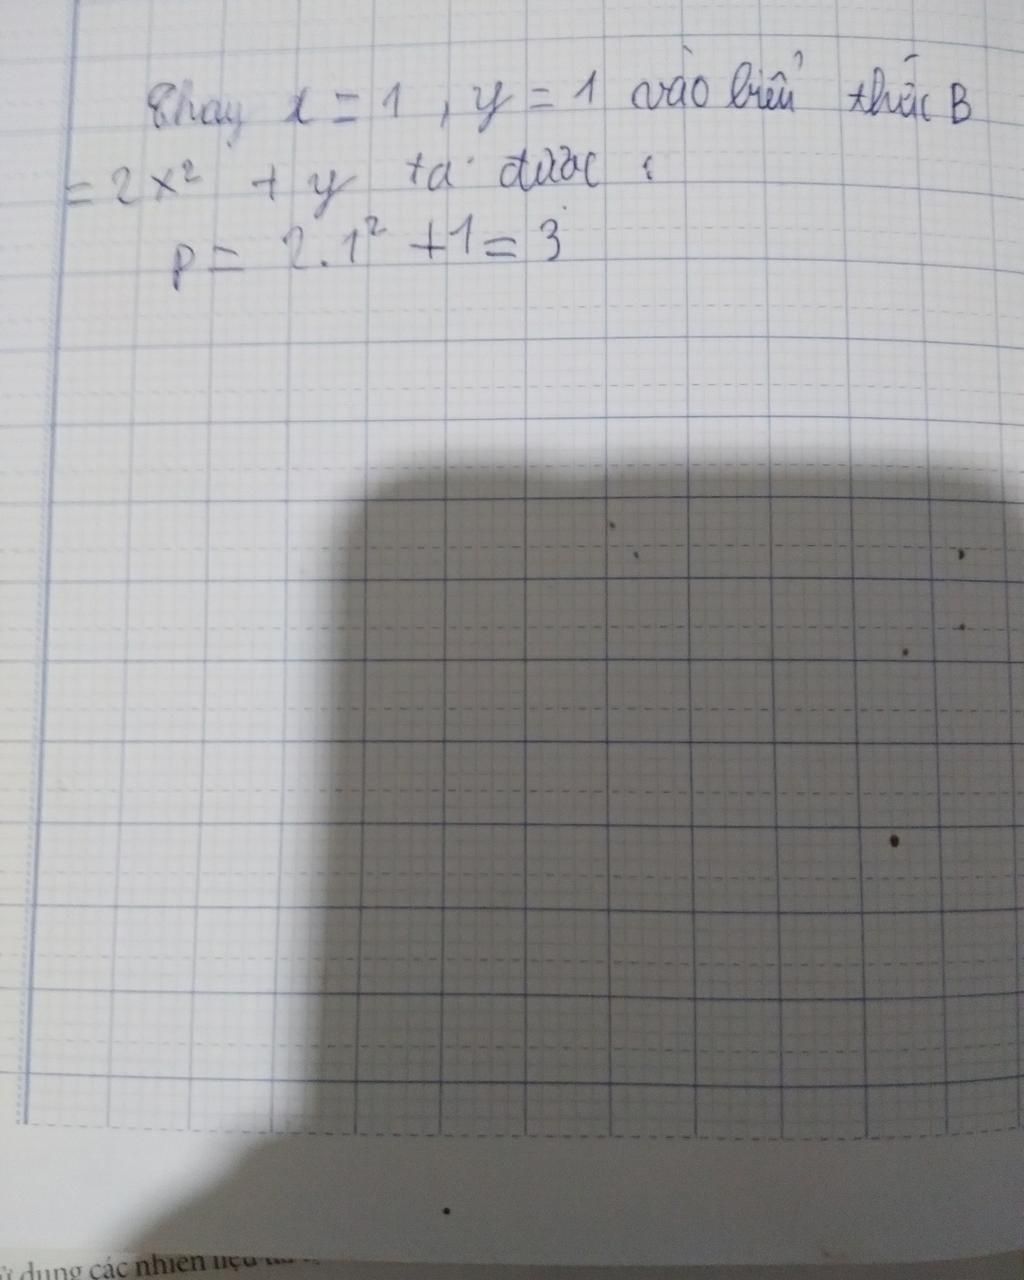 Thay x = 1 , y = 1 vào biểu thức B
= 2x² + y ta được :
P = 2.1² + 1 = 3
dụng các nhiên liệu